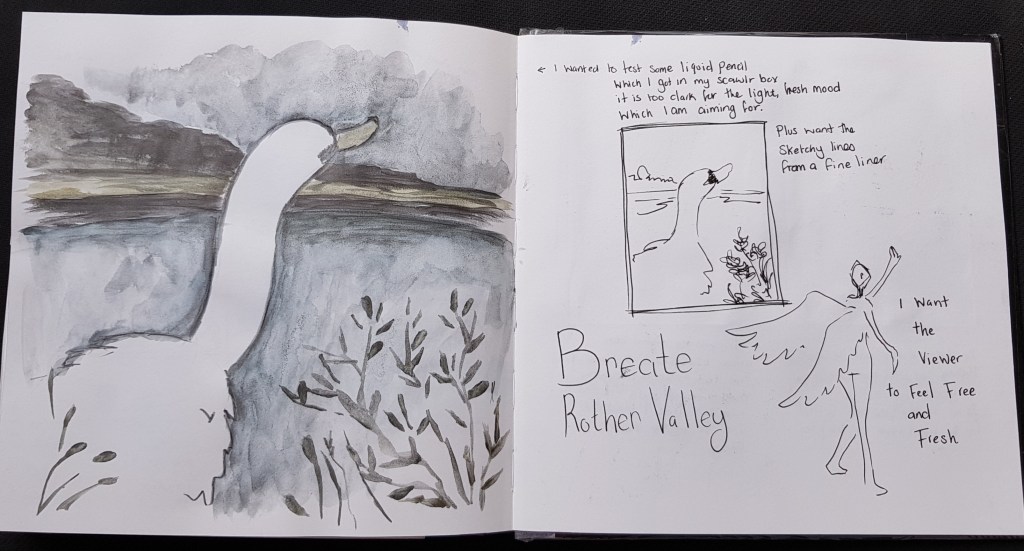 ← I wanted to test some liquid pencil
which I got in my scawlr box
it is too dark for the light, fresh mood
which I am aiming for.
Plus want the
sketchy lines
from a fine liner
Breate
Rother Valley
I want
the
viewer
to Feel Free
and
Fresh